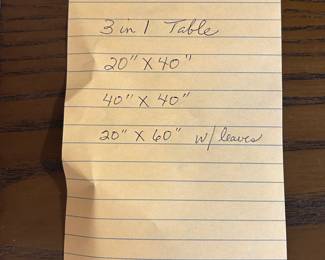 3 in 1 Table
20" X 40"
40" X 40"
20" X 60" w/ leaves